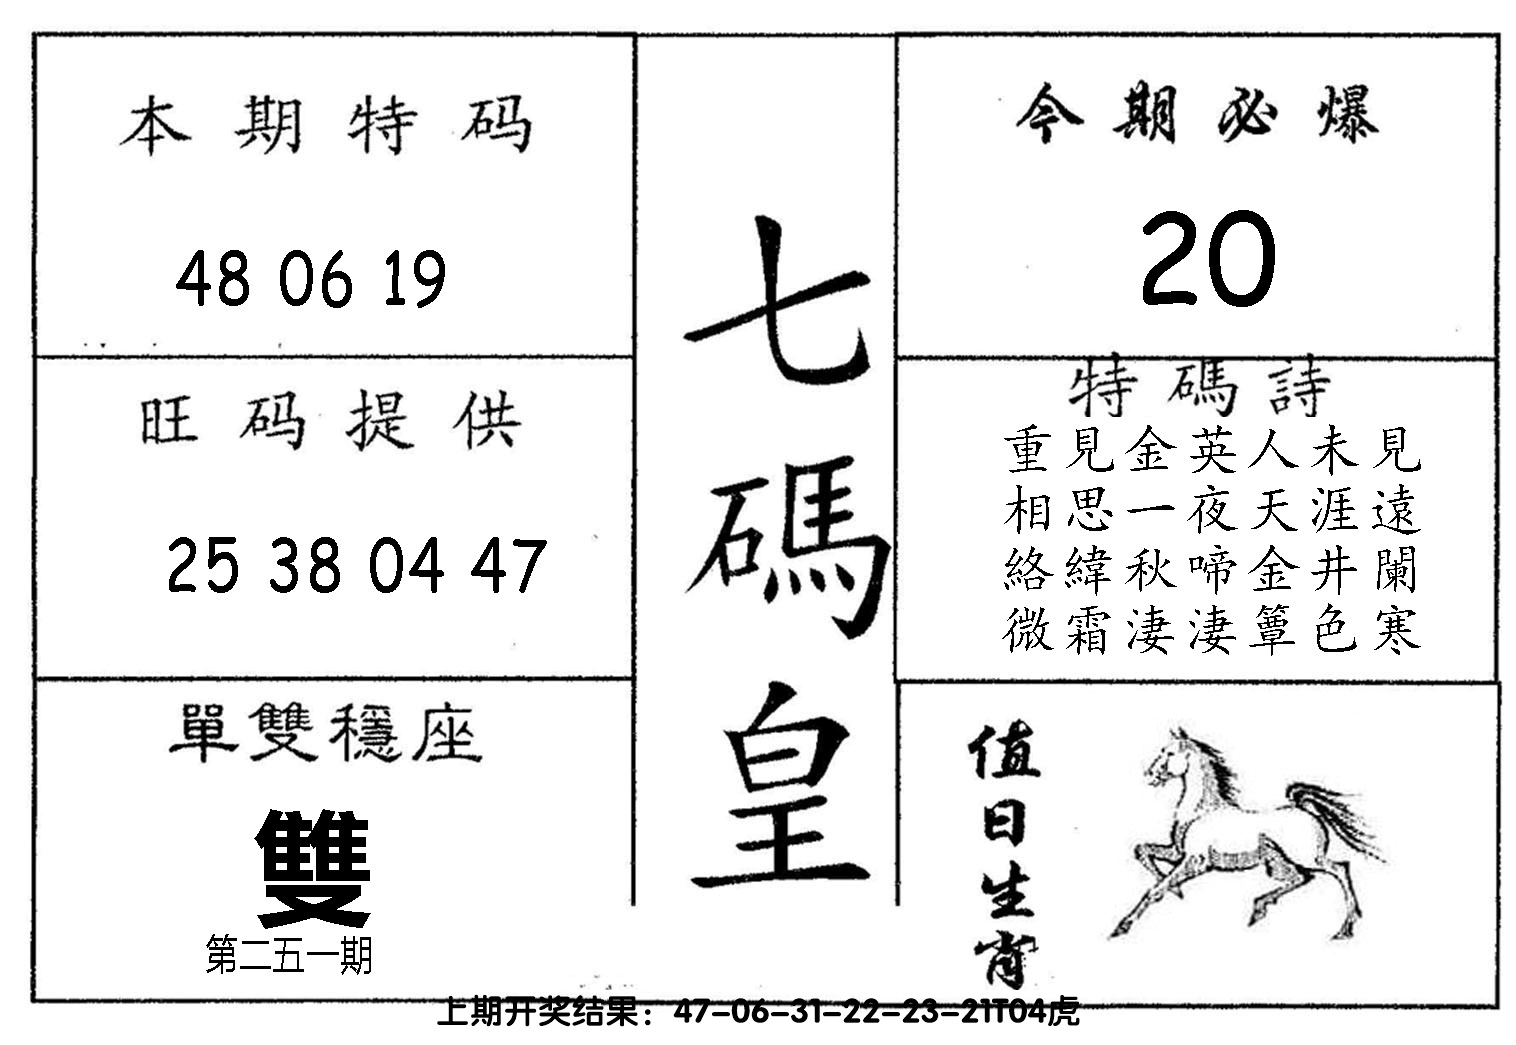 本期特码
48 06 19
旺码提供
25 38 04 47
單雙穩座
雙
第二五一期
七碼皇
今期必爆
20
特碼詩
重見金英人未見
相思一夜天涯遠
絡緯秋啼金井闌
微霜淒淒簟色寒
值日生肖
上期开奖结果：47-06-31-22-23-21T04虎